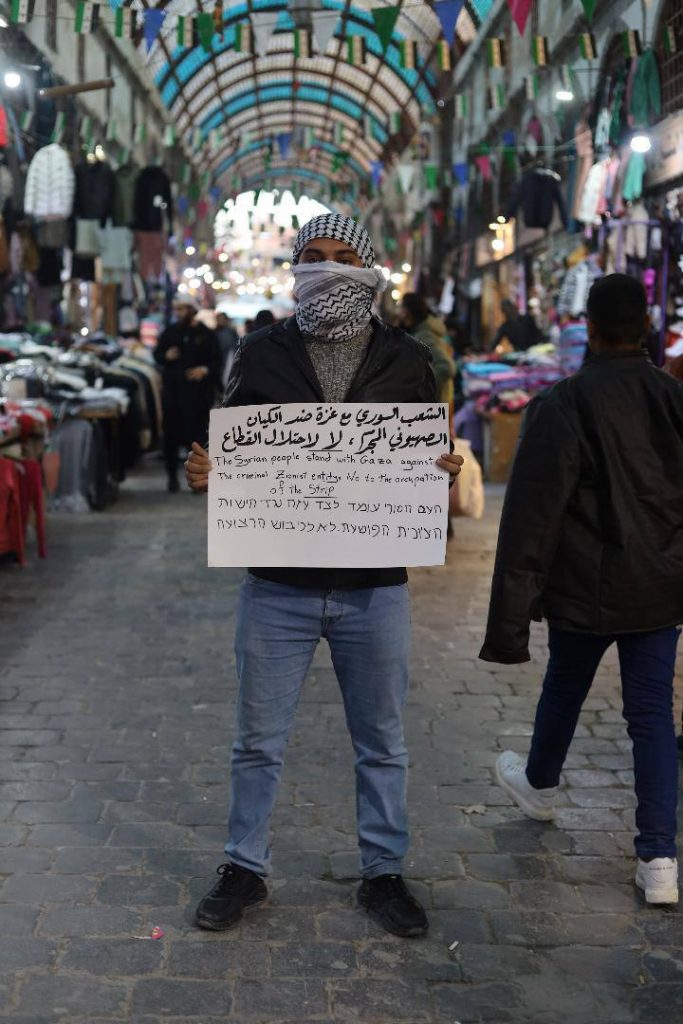 الشعب السوري مع غزة ضد الكيان
الصهيوني المجرم ، لا لاحتلال القطاع
The Syrian people stand with Gaza against
The criminal Zionist entity. No to the occupation
of the Strip
העם הסורי עומד לצד עזה נגד הישות
הציונית הפושעת. לא לכיבוש הרצועה